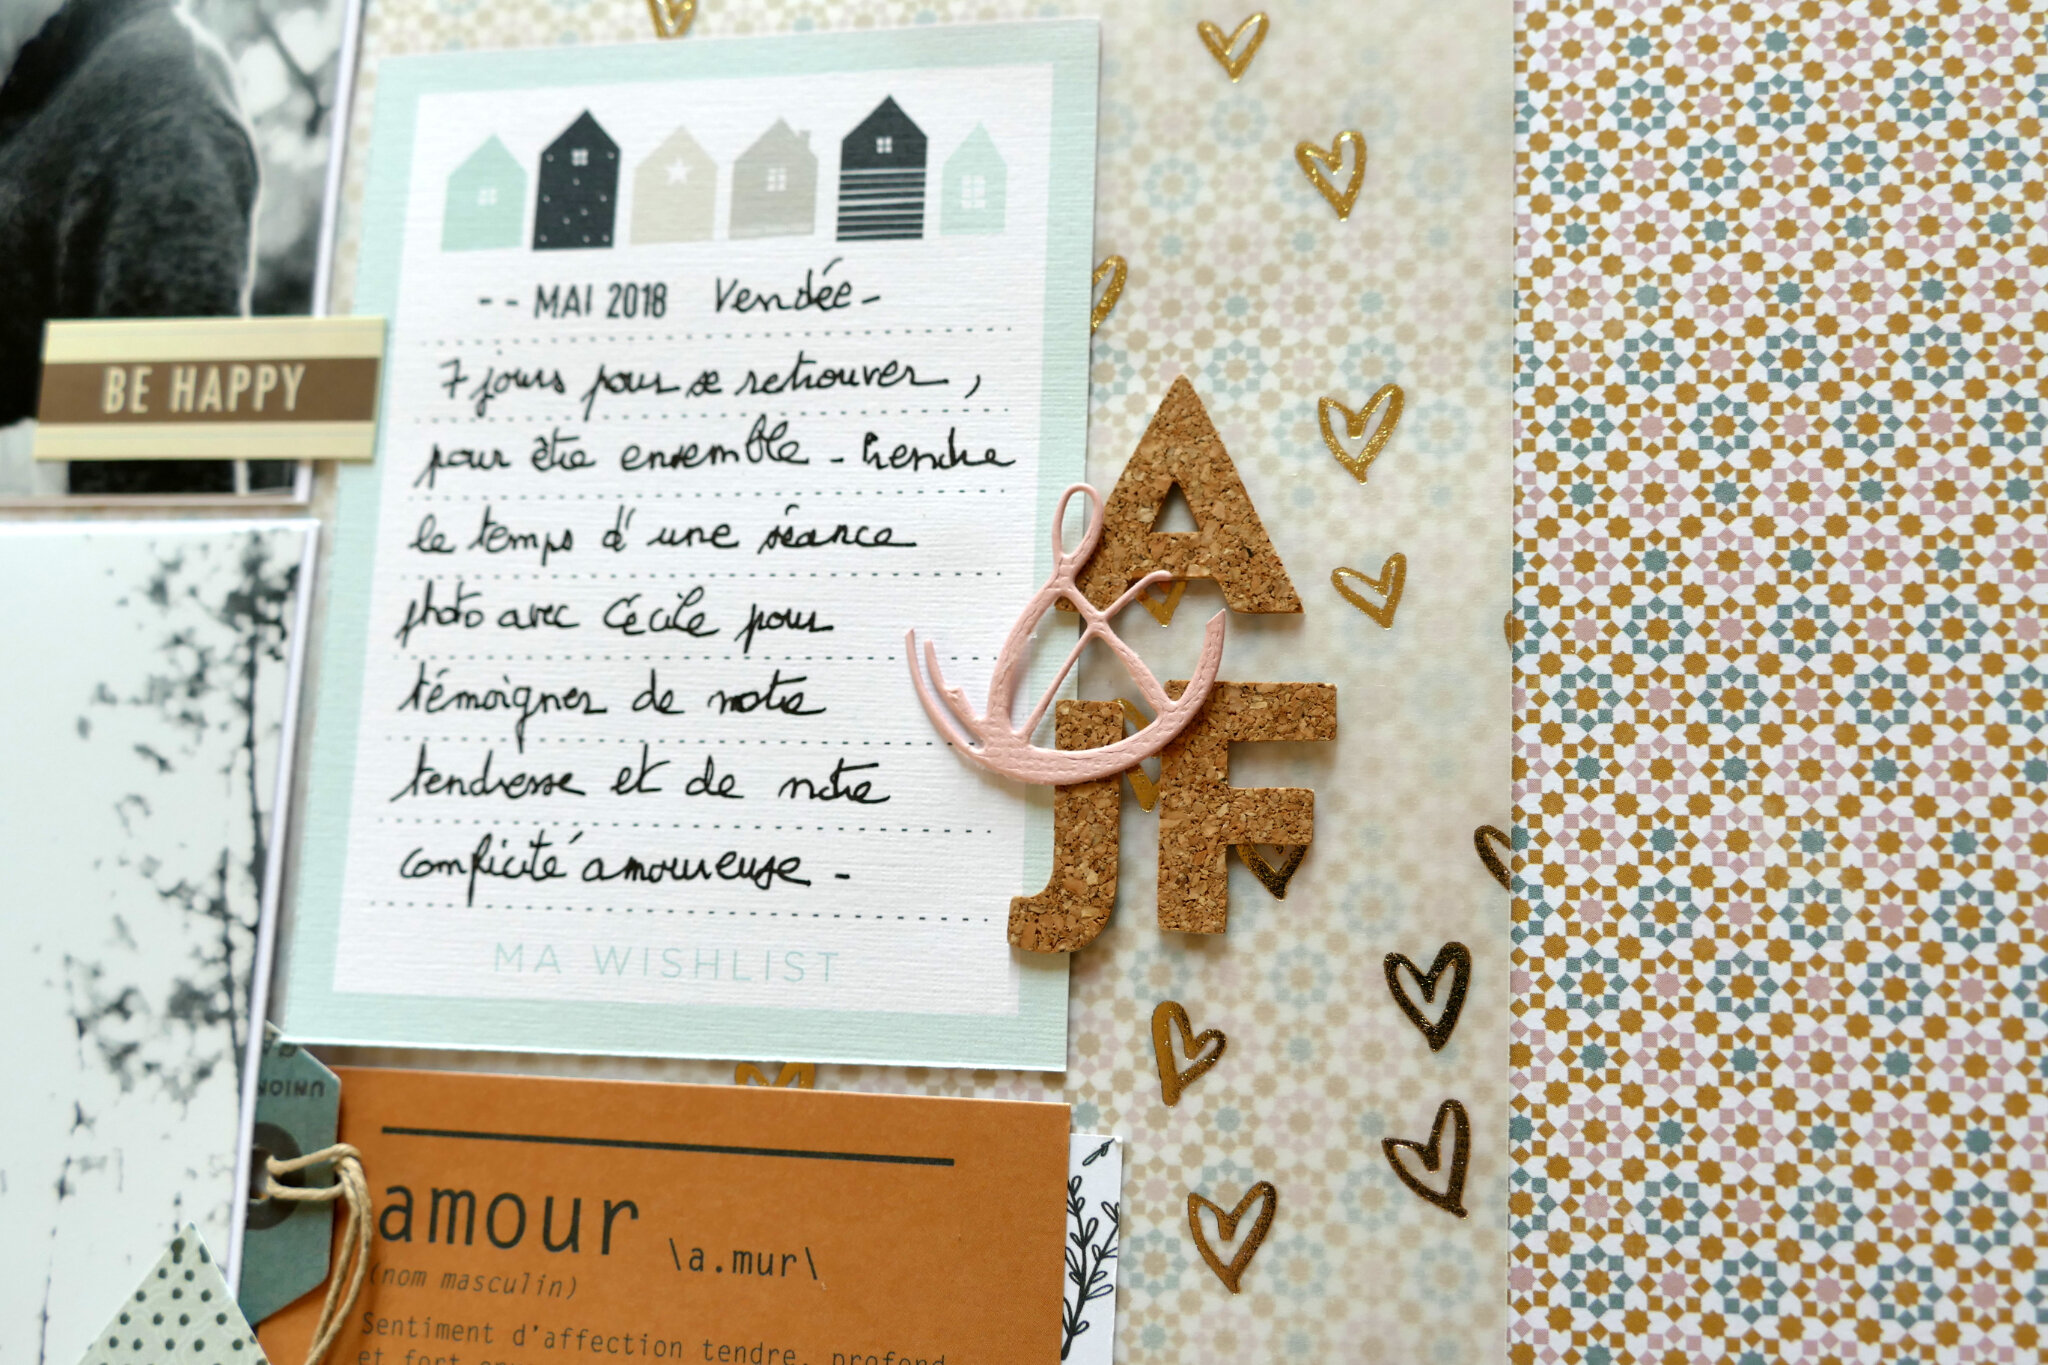 -- MAI 2018 Vendée -
7 jours pour se retrouver,
pour être ensemble - Prendre
le temps d'une séance
photo avec Cécile pour
témoigner de notre
tendresse et de notre
complicité amoureuse -
MA WISHLIST
BE HAPPY
A
&
JF
UNION
amour \a.mur\
(nom masculin)
Sentiment d'affection tendre, profond
et fort